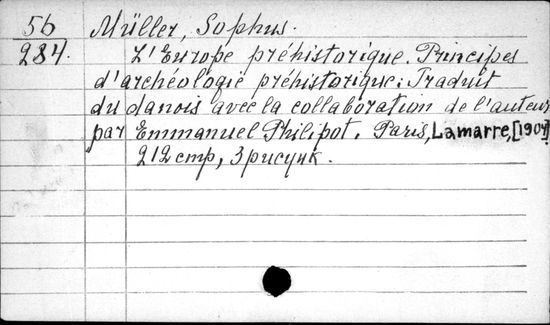 56 Müller, Sophus.
284. L'Europe préhistorique. Principes
d'archéologie préhistorique. Traduit
du danois avec la collaboration de l'auteur
par Emmanuel Philipot. Paris, Lamarre, [1907]
212 стр, 3 рисунк.